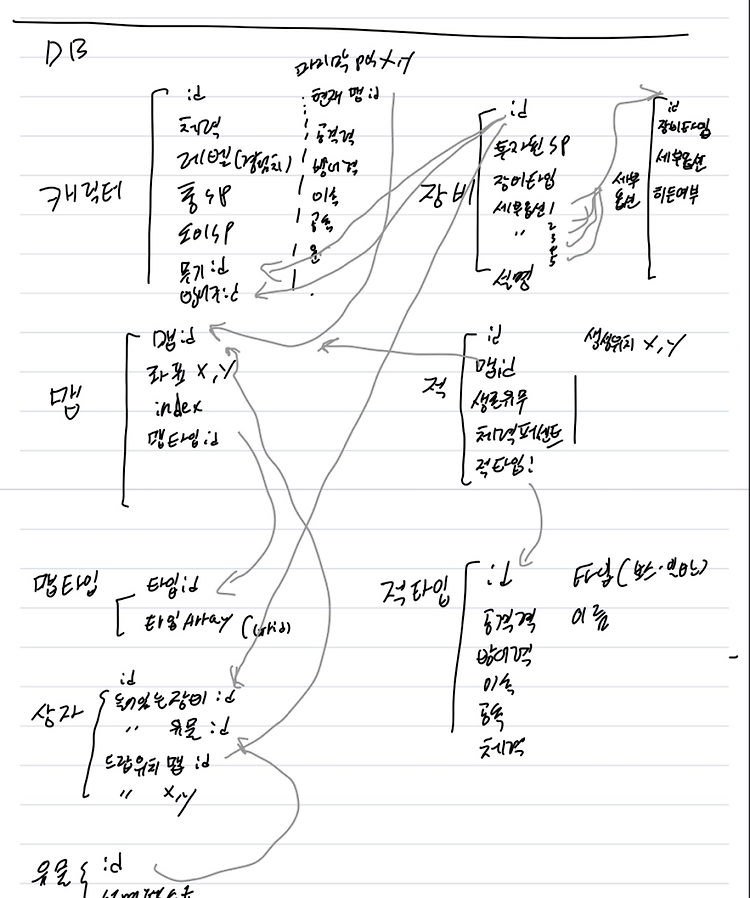 DB
캐릭터
id
체력
레벨(경험치)
총 SP
토이SP
무기 id
방어구 id
마지막 pos X,Y
현재 맵 id
공격력
방어력
이속
공속
운
장비
id
투자된 SP
장비타입
세부옵션 1
" 2
3
4
5
설명
세부
옵션
id
장비타입
세부옵션
히든여부
맵
맵 id
좌표 X,Y
index
맵타입 id
적
id
맵 id
생존유무
체력퍼센트
적타입!
생성위치 X,Y
맵타입
타입 id
타일 Array (grid)
적타입
id
공격력
방어력
이속
공속
체력
타입 (보스·일반)
이름
상자
id
들어있는 장비 id
" 유물 id
드랍위치 맵 id
" X,Y
유물
id